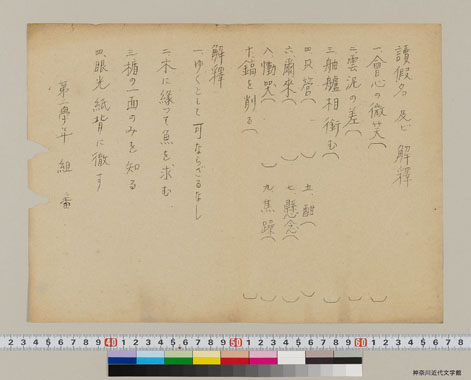 讀假名及ビ解釋
一、會心の微笑（　）
二、雲泥の差（　）
三、舳艫相銜む（　）
四、只管（　）　五、酣（　）
六、爾來（　）　七、懸念（　）
八、慟哭（　）　九、焦躁（　）
十、鎬を削る（　）
解釋
一、ゆくとして可ならざるなし
二、木に縁つて魚を求む
三、楯の一面のみを知る
四、眼光紙背に徹す
第二學年　組　番
2 3 4 5 6 7 8 9 40 1 2 3 4 5 6 7 8 9 50 1 2 3 4 5 6 7 8 9 60 1 2 3 4 5 6 7 8
神奈川近代文学館